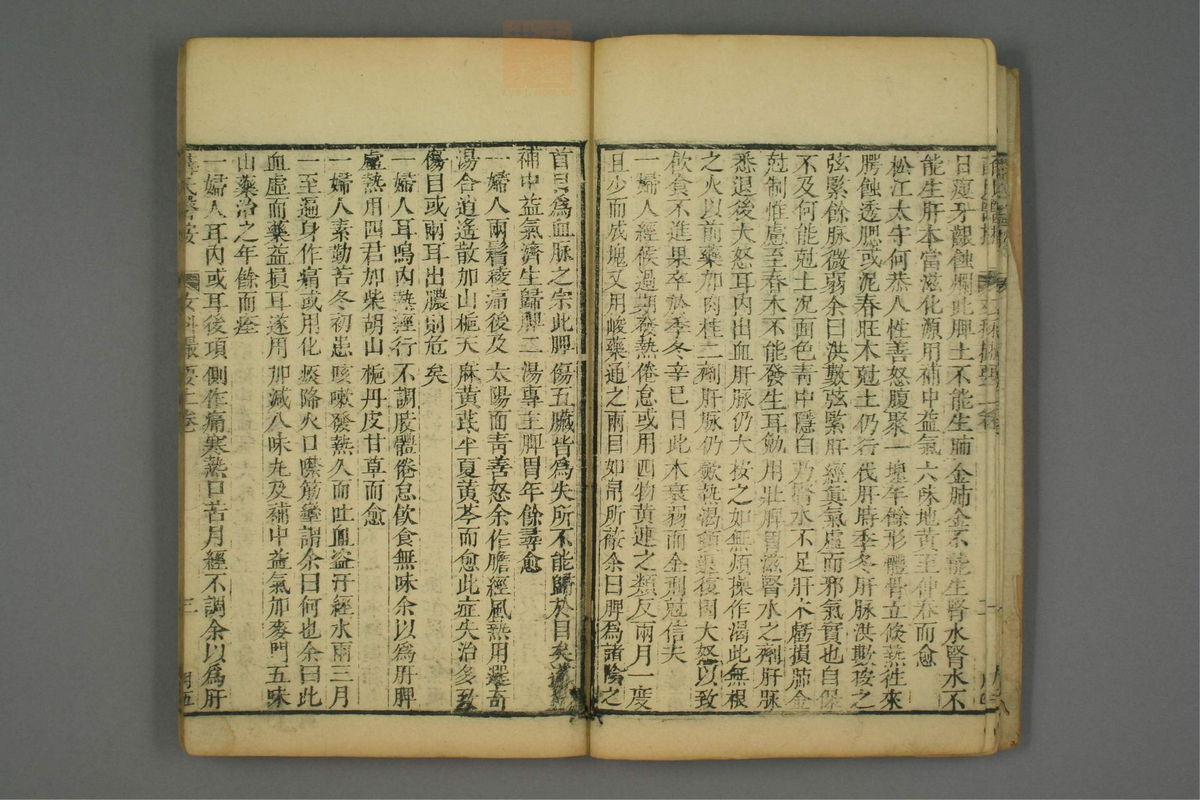 日夏牙齦蝕爛此脾土不能生肺金肺金不能生腎水腎水不
能生肝木當滋化源用補中益氣六味地黃至仲春而愈
松江太守何恭人性善怒腹聚一塊年餘形體骨立倐𤍠徃來
腭蝕透腮或泥春旺木尅土仍行伐肝時季冬肝脉洪數按之
弦緊餘脉微弱余曰洪數弦緊肝經眞氣虛而邪氣實也自保
不及何能尅土况面色靑中隱白乃腎水不足肝木虧損肺金
尅制惟慮至春木不能發生耳勉用壯脾胃滋腎水之劑肝脉
悉退後大怒耳內出血肝脉仍大按之如無煩操作渴此無根
之火以前藥加肉桂二劑肝脉仍斂熱渴頓退復因大怒以致
飲食不進果卒於季冬辛巳日此木衰弱而金刑尅信夫
一婦人經候過期發熱倦怠或用四物黃連之類反兩月一度
且少而成塊又用峻藥通之兩目如帛所蔽余曰脾爲諸陰之
首目爲血脉之宗此脾傷五臟皆爲失所不能歸於目矣遂
補中益氣濟生歸脾二湯專主脾胃年餘尋愈
一婦人兩鬢稜痛後及太陽面靑善怒余作膽經風熱用選奇
湯合逍遙散加山梔天麻黃茋半夏黃芩而愈此症失治多致
傷目或兩耳出膿則危矣
一婦人耳鳴內熱經行不調肢體倦怠飲食無味余以爲肝脾
虛熱用四君加柴胡山梔丹皮甘草而愈
一婦人素勤苦冬初患咳嗽發熱久而吐血盜汗經水兩三月
一至遍身作痛或用化痰降火口噤筋攣謂余曰何也余曰此
血虛而藥益損耳遂用加減八味丸及補中益氣加麥門五味
山藥治之年餘而痊
一婦人耳內或耳後項側作痛寒熱口苦月經不調余以爲肝